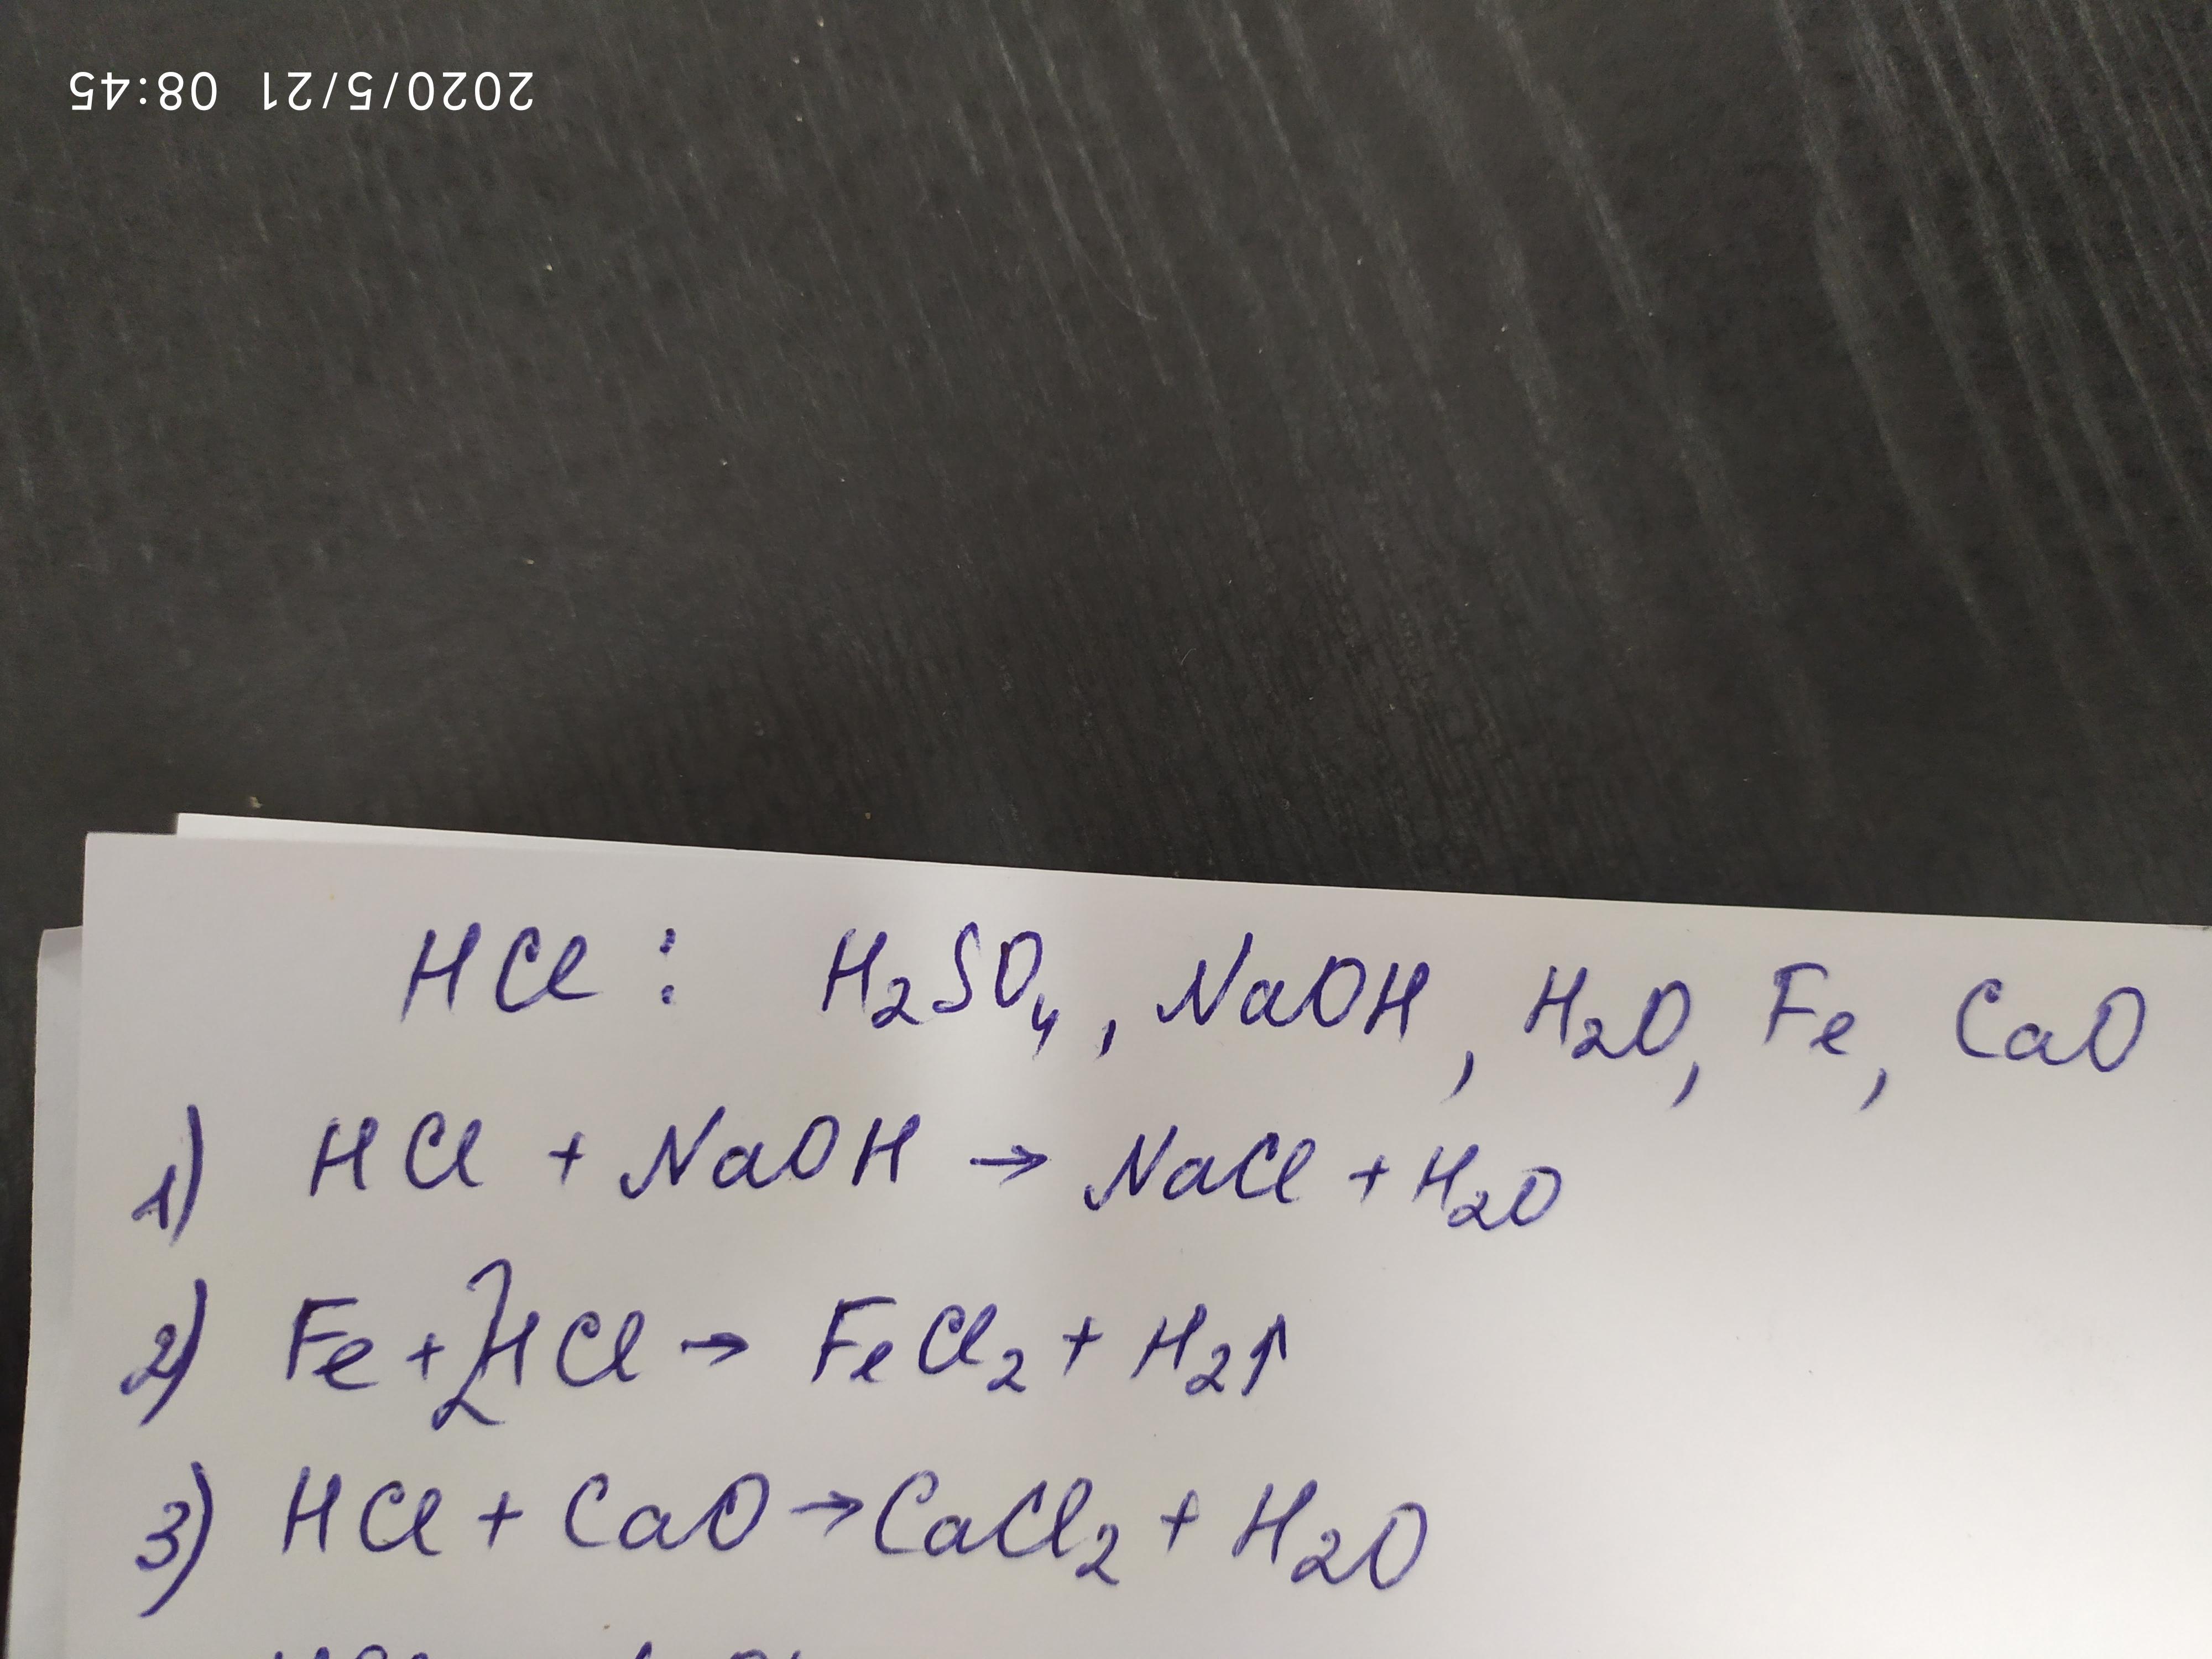 2020/5/21 08:45
HCl : H₂SO₄, NaOH, H₂O, Fe, CaO
1) HCl + NaOH → NaCl + H₂O
2) Fe + 2HCl → FeCl₂ + H₂↑
3) HCl + CaO → CaCl₂ + H₂O